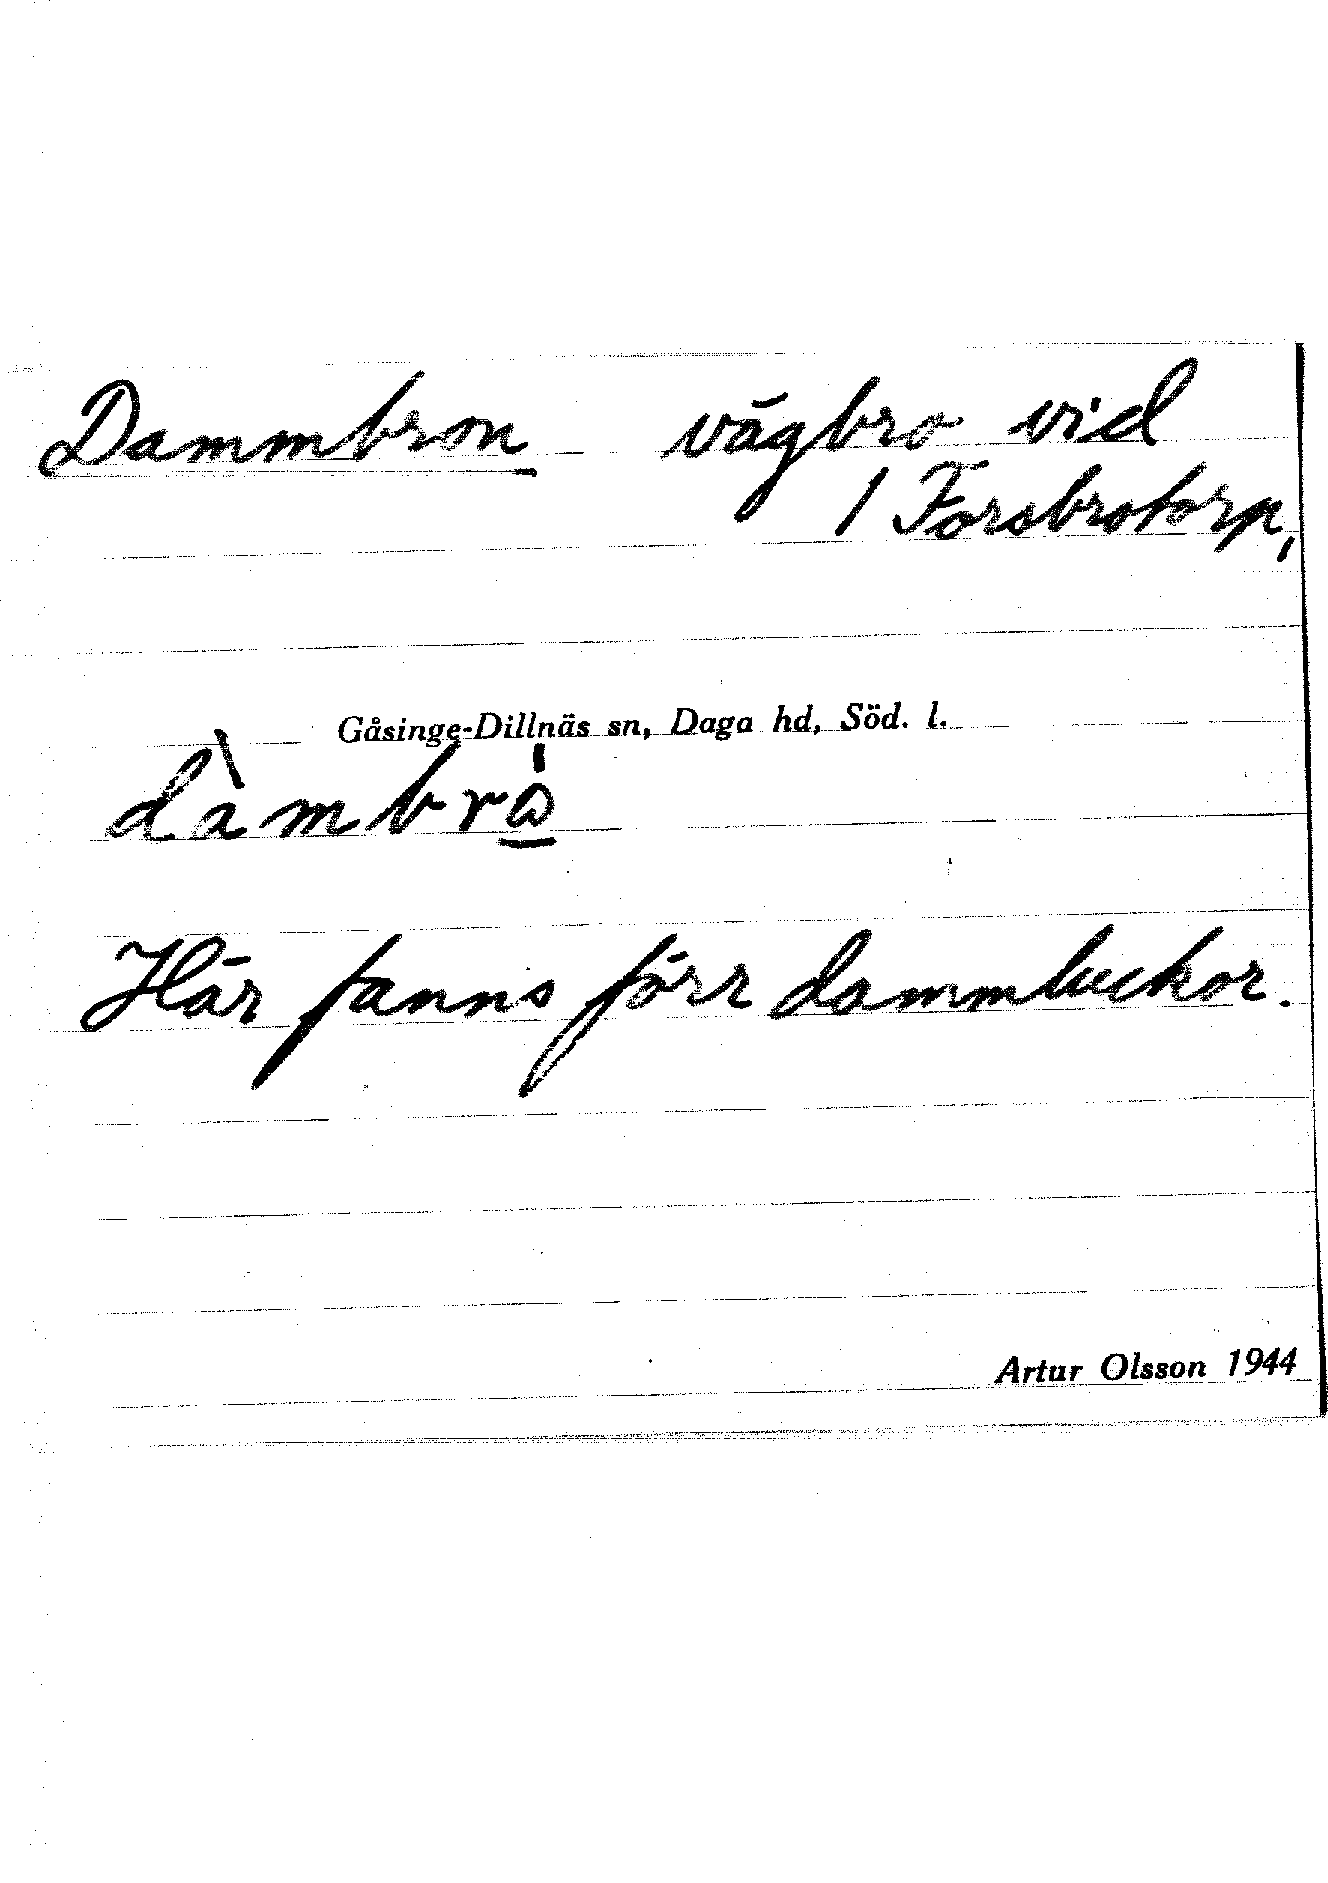 Dammbron vägbro vid
/ Forsbrotorp,
Gåsinge-Dillnäs sn, Daga hd, Söd. l.
Här fanns förr dammluckor.
Artur Olsson 1944